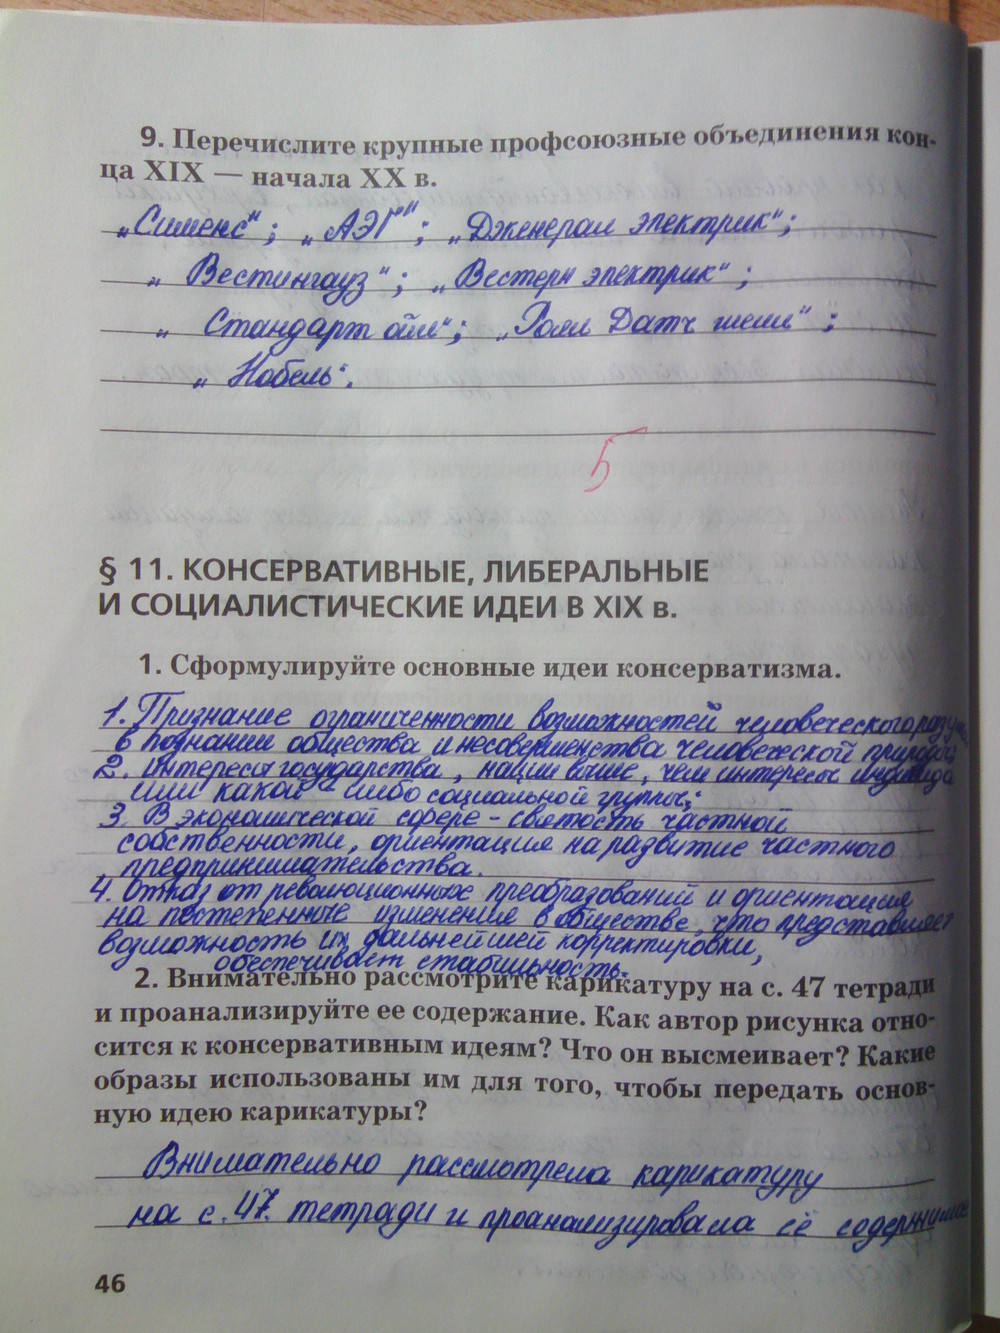 9. Перечислите крупные профсоюзные объединения кон-
ца XIX — начала XX в.
„Сименс"; „АЭГ"; „Дженерал электрик";
„Вестингауз"; „Вестерн электрик";
„Стандарт ойл"; „Роял Датч шелл";
„Нобель".
5
§ 11. КОНСЕРВАТИВНЫЕ, ЛИБЕРАЛЬНЫЕ
И СОЦИАЛИСТИЧЕСКИЕ ИДЕИ В XIX в.
1. Сформулируйте основные идеи консерватизма.
1. Признание ограниченности возможностей человеческого разума
в познании общества и несовершенства человеческой природы;
2. интересы государства, нации выше, чем интересы индивида
или какой-либо социальной группы;
3. В экономической сфере - святость частной
собственности, ориентация на развитие частного
предпринимательства.
4. Отказ от революционных преобразований и ориентация
на постепенные изменения в обществе, что представляет
возможность их дальнейшей корректировки,
обеспечивает стабильность.
2. Внимательно рассмотрите карикатуру на с. 47 тетради
и проанализируйте ее содержание. Как автор рисунка отно-
сится к консервативным идеям? Что он высмеивает? Какие
образы использованы им для того, чтобы передать основ-
ную идею карикатуры?
Внимательно рассмотрела карикатуру
на с. 47. тетради и проанализировала её содержимое
46